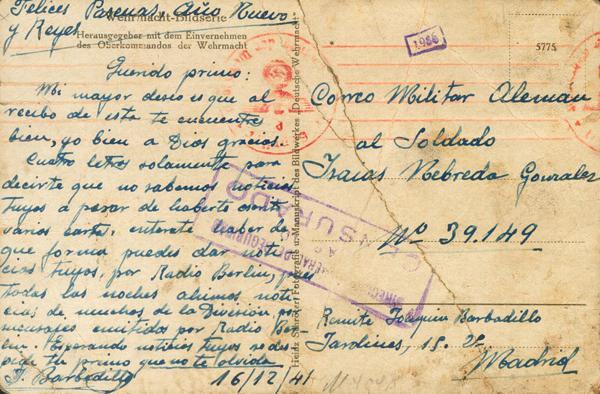 Felices Pascuas, Año Nuevo
y Reyes
Wehrmacht-Bildserie
Herausgegeben mit dem Einvernehmen
des Oberkommandos der Wehrmacht
Querido primo:
Mi mayor deseo es que al
recibo de esta te encuentres
bien, yo bien a Dios gracias.
Cuatro letras solamente para
decirte que no sabemos noticias
tuyas a pesar de haberte escrito
varias cartas, enterate haber de
que forma puedes dar noti
cias tuyas, por Radio Berlin, pues
todas las noches ahimos noti
cias de muchos de la División por
mensages emitidos por Radio Ber
lin. Esperando noticias tuyas se des
pide tu primo que no te olvida
J. Barbadillo
16/12/41
Bildwerkes „Deutsche Wehrmacht"
1986
5775
Correo Militar Aleman
al Soldado
Isaias Nebreda Gonzalez
Nº 39.149
CENSURADO
Remite Joaquin Barbadillo
Jardines, 15. 2º
Madrid